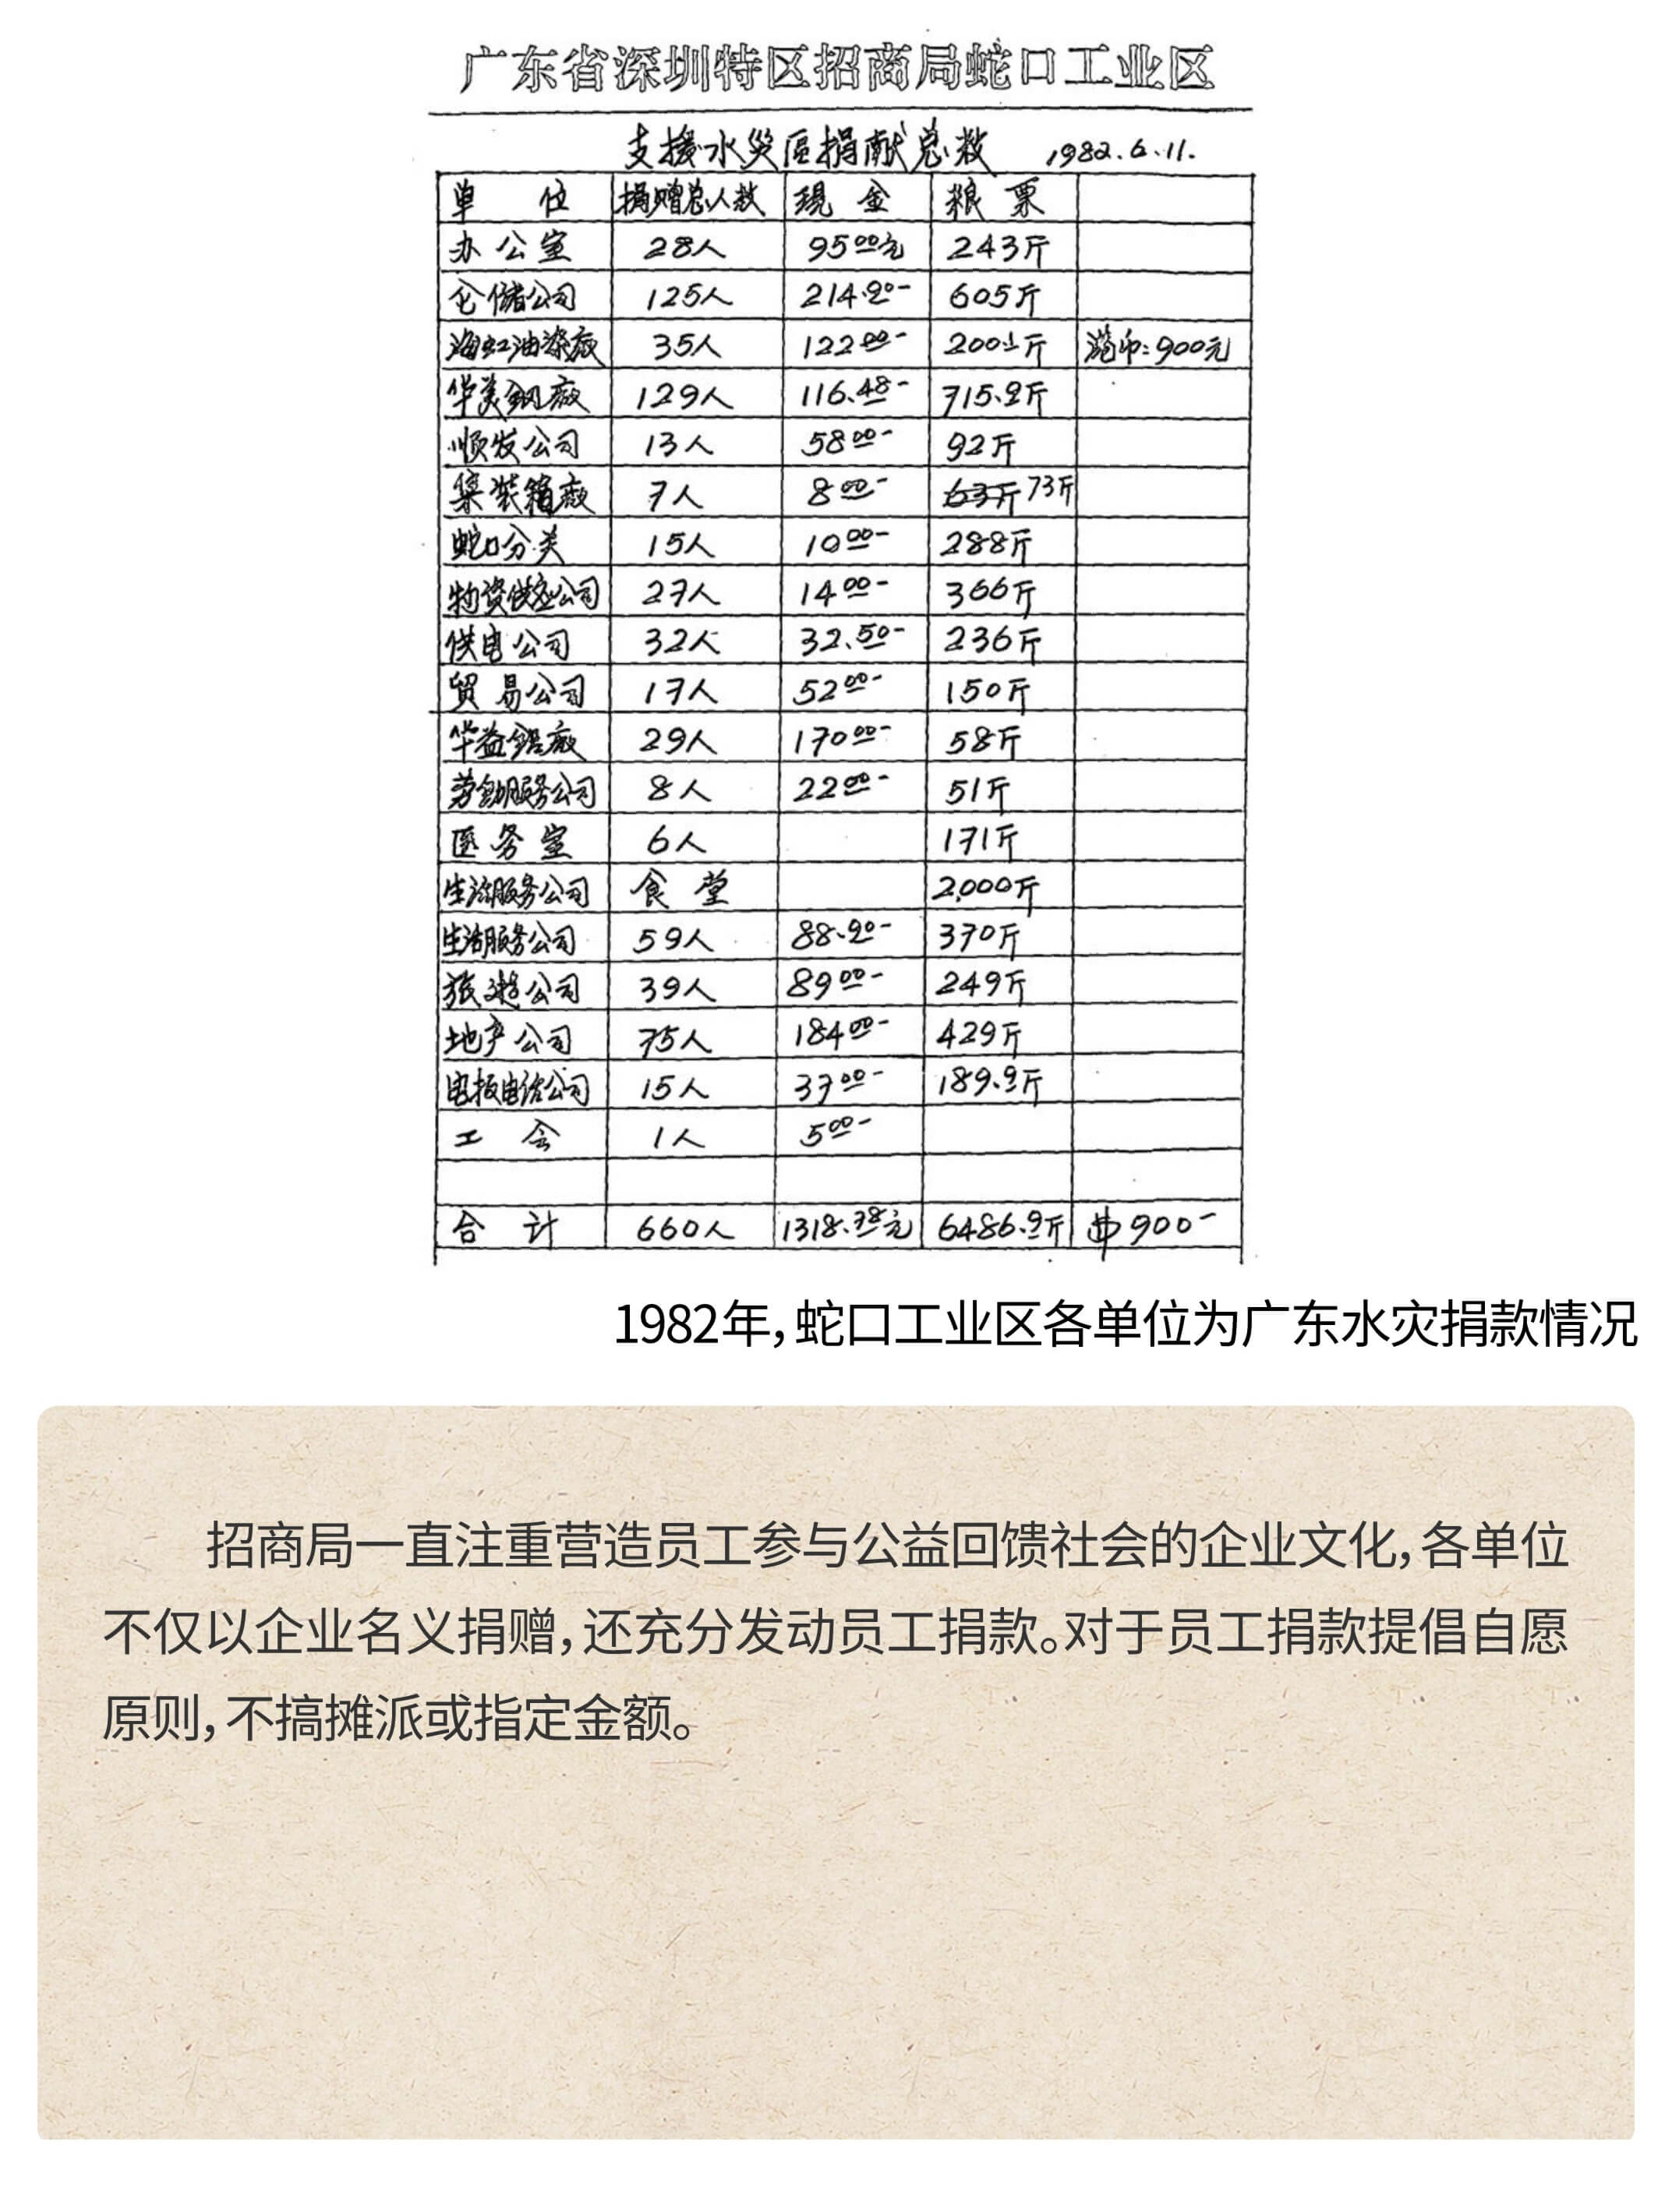 广东省深圳特区招商局蛇口工业区
支援水災區捐献总数 1982.6.11.
单 位 捐赠总人数 现 金 粮 票
办公室 28人 95.00元 243斤
仓储公司 125人 214.20- 605斤
海虹油漆廠 35人 122.00- 200斤 港币:900元
华美钢廠 129人 116.48- 715.2斤
顺发公司 13人 58.00- 92斤
集装箱廠 7人 8.00- 63斤 73斤
蛇口分关 15人 10.00- 288斤
物资供应公司 27人 14.00- 366斤
供电公司 32人 32.50- 236斤
贸易公司 17人 52.00- 150斤
华益铝廠 29人 170.00- 58斤
劳动服务公司 8人 22.00- 51斤
医务室 6人 171斤
生活服务公司 食堂 2,000斤
生活服务公司 59人 88.20- 370斤
旅遊公司 39人 89.00- 249斤
地产公司 75人 184.00- 429斤
电报电话公司 15人 37.00- 189.9斤
工 会 1人 5.00-
合 计 660人 1318.38元 6486.9斤 $900-
1982年，蛇口工业区各单位为广东水灾捐款情况
招商局一直注重营造员工参与公益回馈社会的企业文化，各单位
不仅以企业名义捐赠，还充分发动员工捐款。对于员工捐款提倡自愿
原则，不搞摊派或指定金额。